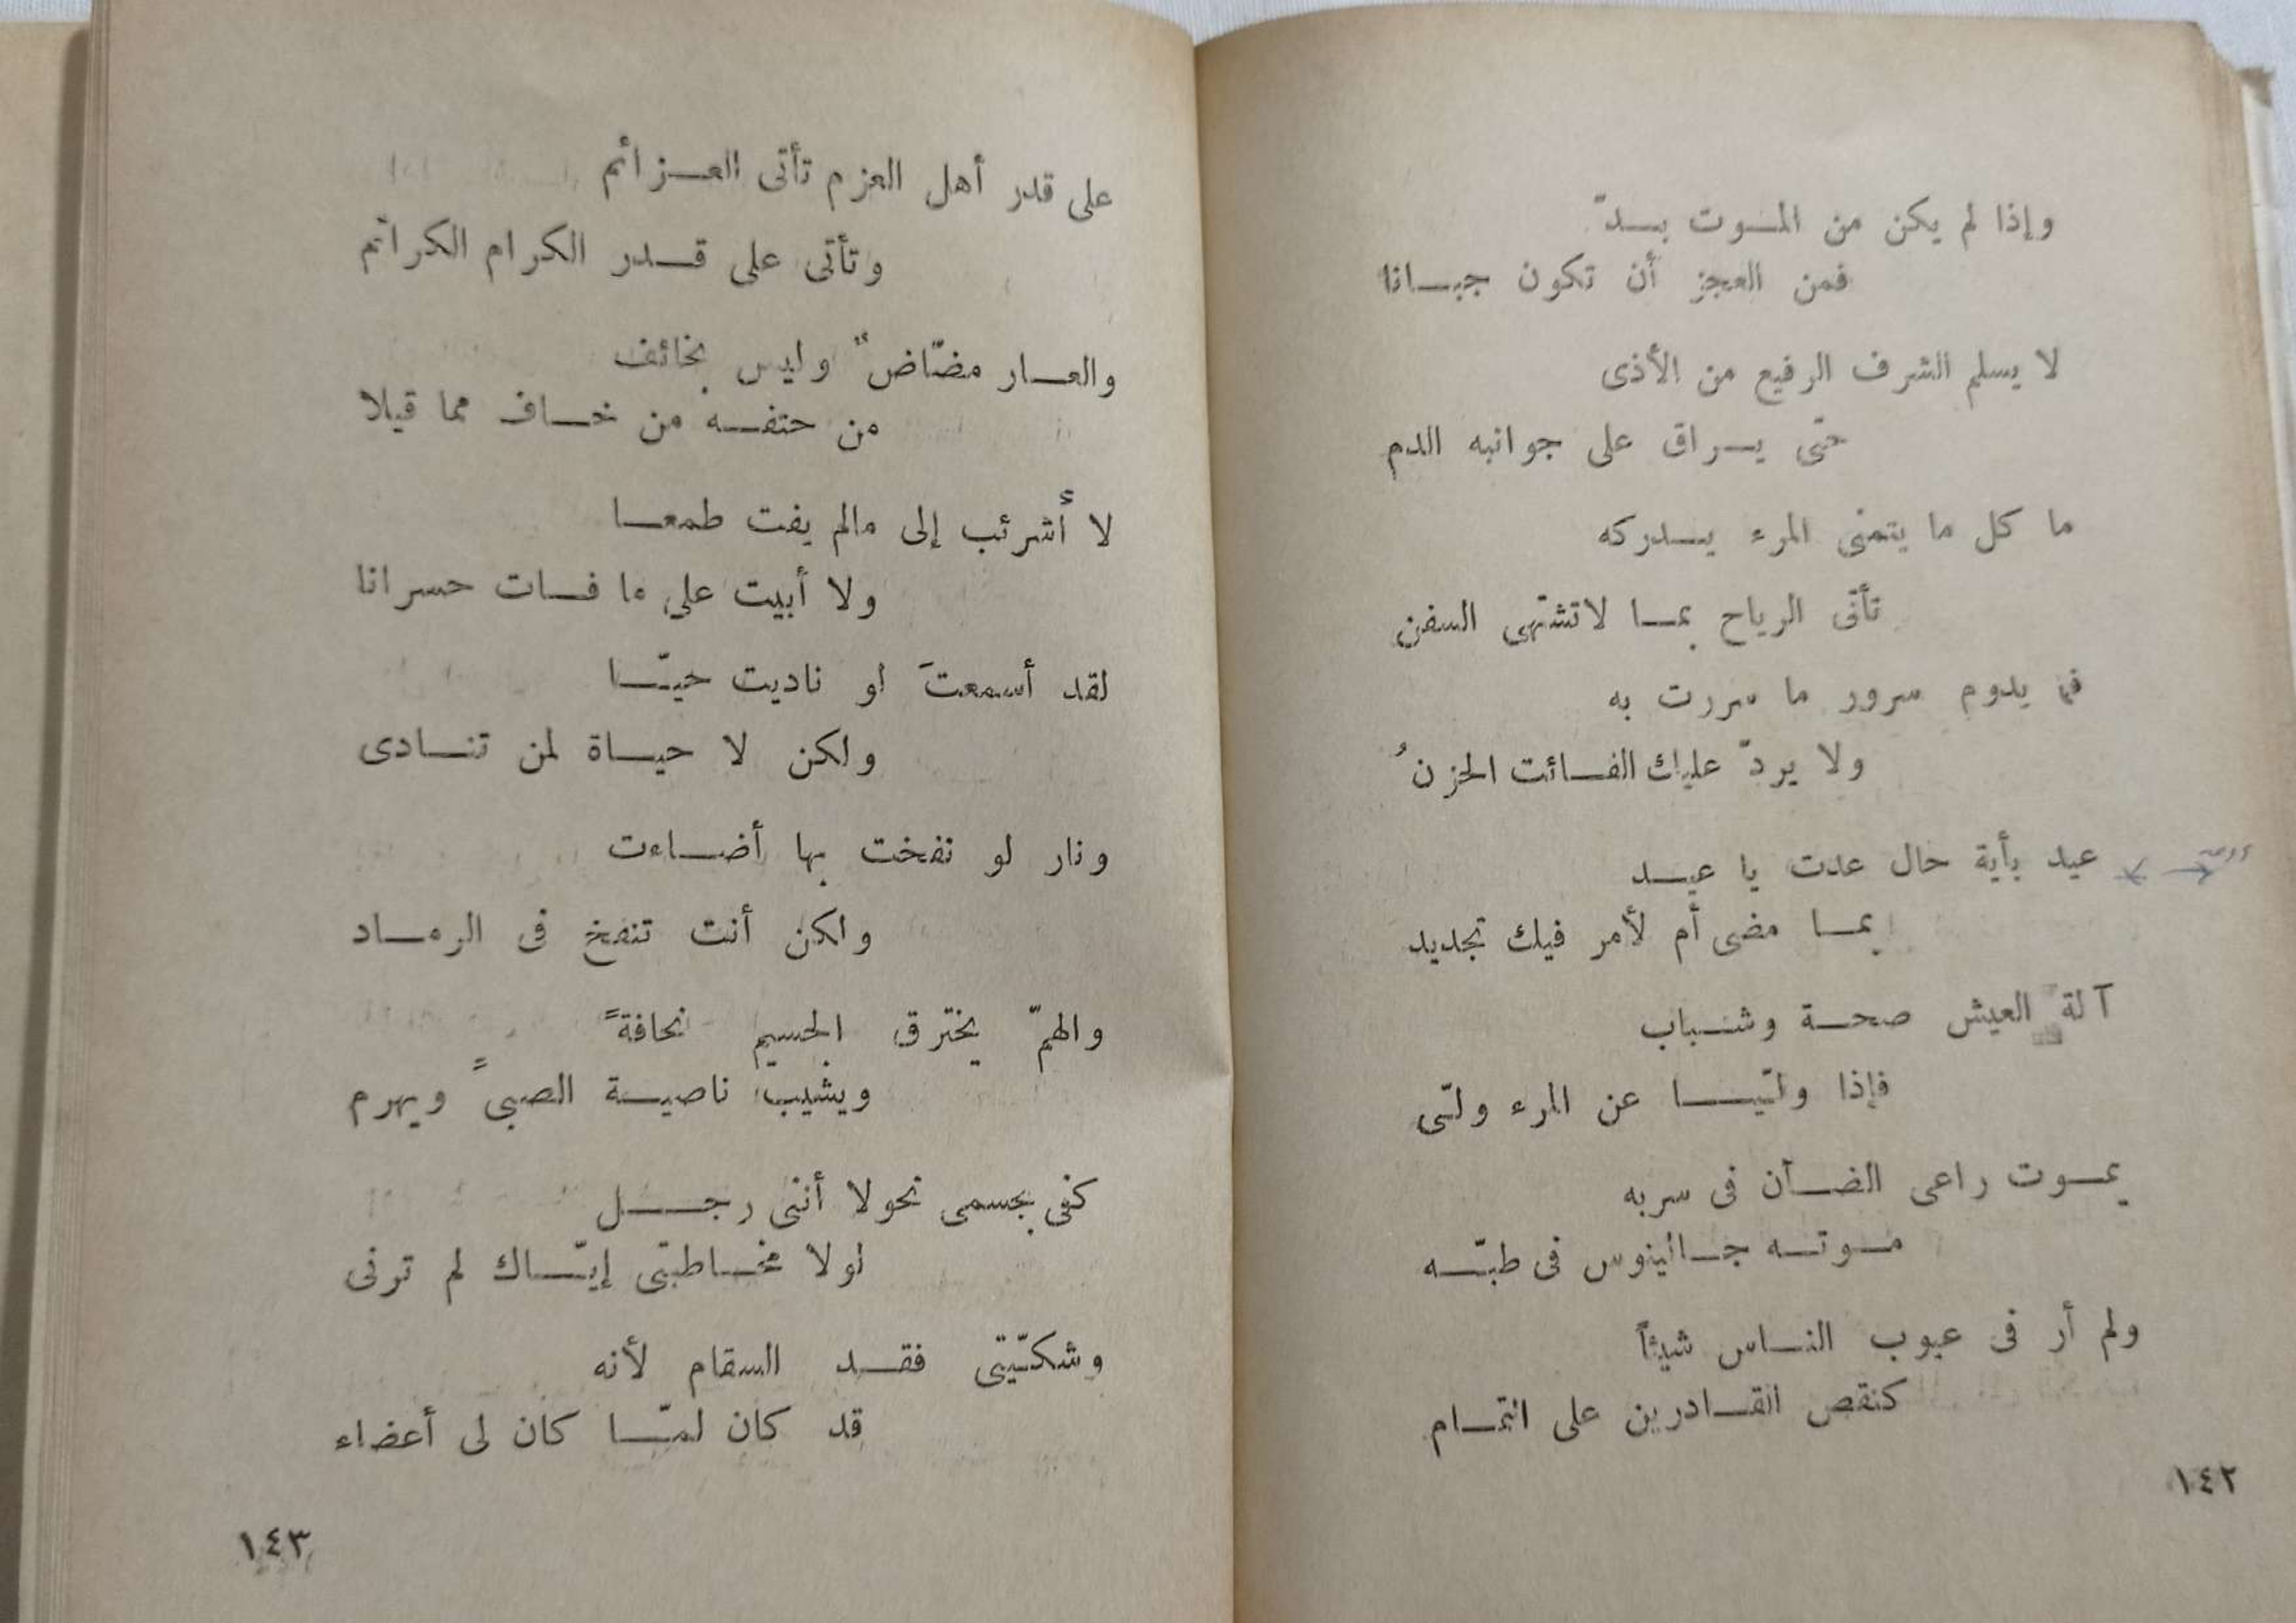 وإذا لم يكن من المـوت بـدّ
فمن العجز أن تكون جبـانا
لا يسلم الشرف الرفيع من الأذى
حتى يـراق على جوانبه الدم
ما كل ما يتمنى المرء يـدركه
تأتى الرياح بمـا لاتشتهى السفن
فما يدوم سرور ما سررت به
ولا يردّ عليك الفـائت الحزنُ
عيد بأية حال عدت يا عيـد
بمـا مضى أم لأمر فيك تجديد
آلة العيش صحـة وشـباب
فإذا ولّيـا عن المرء ولّى
يمـوت راعى الضـأن فى سربه
مـوتـه جـالينوس فى طبّـه
ولم أر فى عيوب النـاس شيئاً
كنقص القـادرين على التمـام
١٤٢
على قدر أهل العزم تأتى العـزائم
وتأتى على قـدر الكرام الكرائم
والعـار مضّاضٌ وليس بخائف
من حتفـه من خـاف مما قيلا
لا أشرئب إلى مالم يفت طمعـا
ولا أبيت على ما فـات حسرانا
لقد أسمعتَ لو ناديت حيّـا
ولكن لا حيـاة لمن تنـادى
ونار لو نفخت بها أضـاءت
ولكن أنت تنفخ فى الرمـاد
والهمّ يخترق الجسيم نحافةً
ويشيب ناصيـة الصبىّ ويهرم
كفى بجسمى نحولا أننى رجـل
لولا مخـاطبتى إيّـاك لم ترنى
وشكيّتى فقـد السقام لأنه
قد كان لمّـا كان لى أعضاء
١٤٣